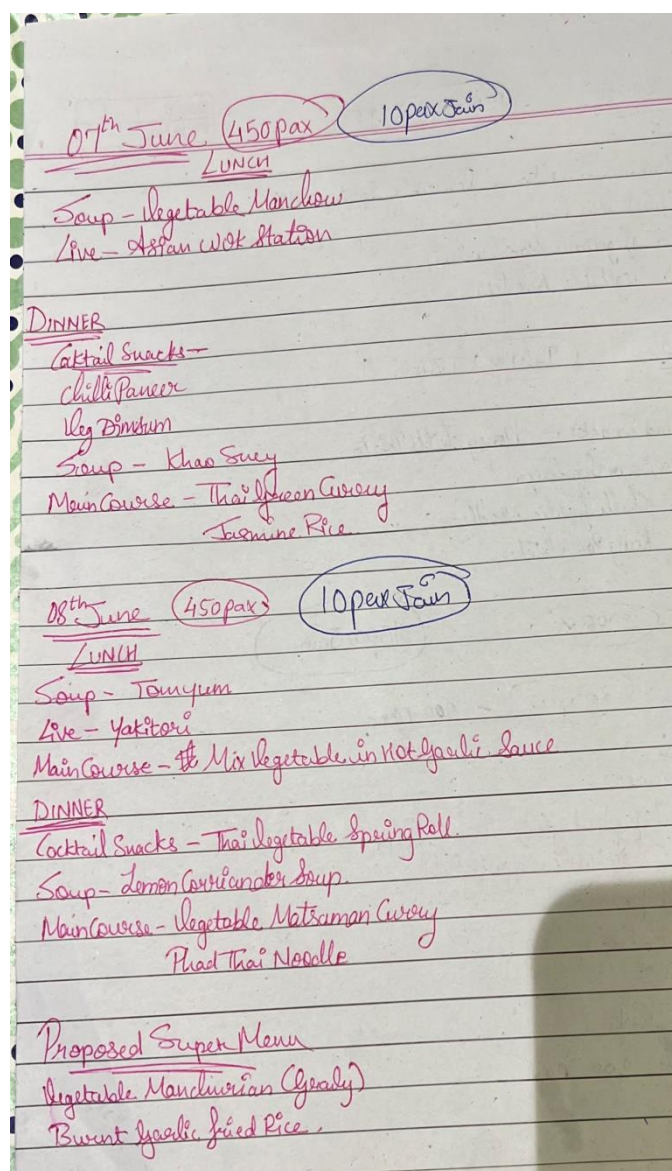 07th June 450pax 10pax Jain
LUNCH
Soup - Vegetable Manchow
Live - Asian Wok Station
DINNER
Cocktail Snacks -
Chilli Paneer
Veg Dimsum
Soup - Khao Suey
Main Course - Thai Green Curry
Jasmine Rice
08th June 450pax 10pax Jain
LUNCH
Soup - Tomyum
Live - Yakitori
Main Course - Mix Vegetable in Hot Garlic Sauce
DINNER
Cocktail Snacks - Thai Vegetable Spring Roll
Soup - Lemon Corriander Soup
Main Course - Vegetable Matsaman Curry
Phad Thai Noodle
Proposed Super Menu
Vegetable Manchurian (Gravy)
Burnt Garlic fried Rice.